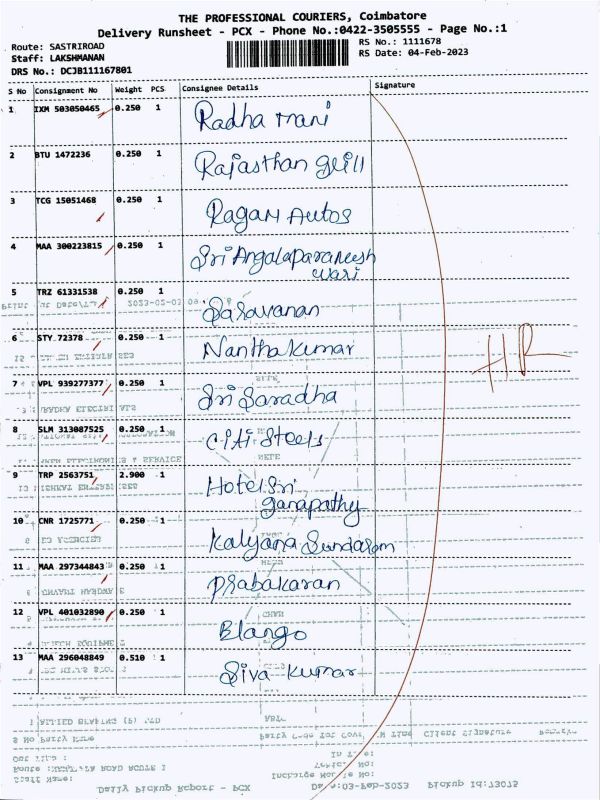 THE PROFESSIONAL COURIERS, Coimbatore
Delivery Runsheet - PCX - Phone No.:0422-3505555 - Page No.:1
Route: SASTRIROAD
RS No.: 1111678
Staff: LAKSHMANAN
RS Date: 04-Feb-2023
DRS No.: DCJB111167801
S No Consignment No Weight PCS Consignee Details Signature
1 IXM 503050465 0.250 1 Radha mani
2 BTU 1472236 0.250 1 Rajasthan grill
3 TCG 15051468 0.250 1 Ragam Autos
4 MAA 300223815 0.250 1 Sri Angalaparamesh
wari
5 TRZ 61331538 0.250 1 Saravanan
6 STY 72378 0.250 1 Nanthakumar
7 VPL 939277377 0.250 1 Sri Saradha
8 SLM 313087525 0.250 1 Citi Steels
9 TRP 2563751 2.900 1 Hotel Sri
ganapathy
10 CNR 1725771 0.250 1 Kalyana Sundaram
11 MAA 297344843 0.250 1 Prabakaran
12 VPL 401032890 0.250 1 Blango
13 MAA 296048849 0.510 1 Siva Kumar
HR
S No Party Name Party Code Tot Covr Client Signature
Out Time : In Time:
Staff Name:
Daily Pickup Report - PCX 03-Feb-2023 Pickup Id:73075